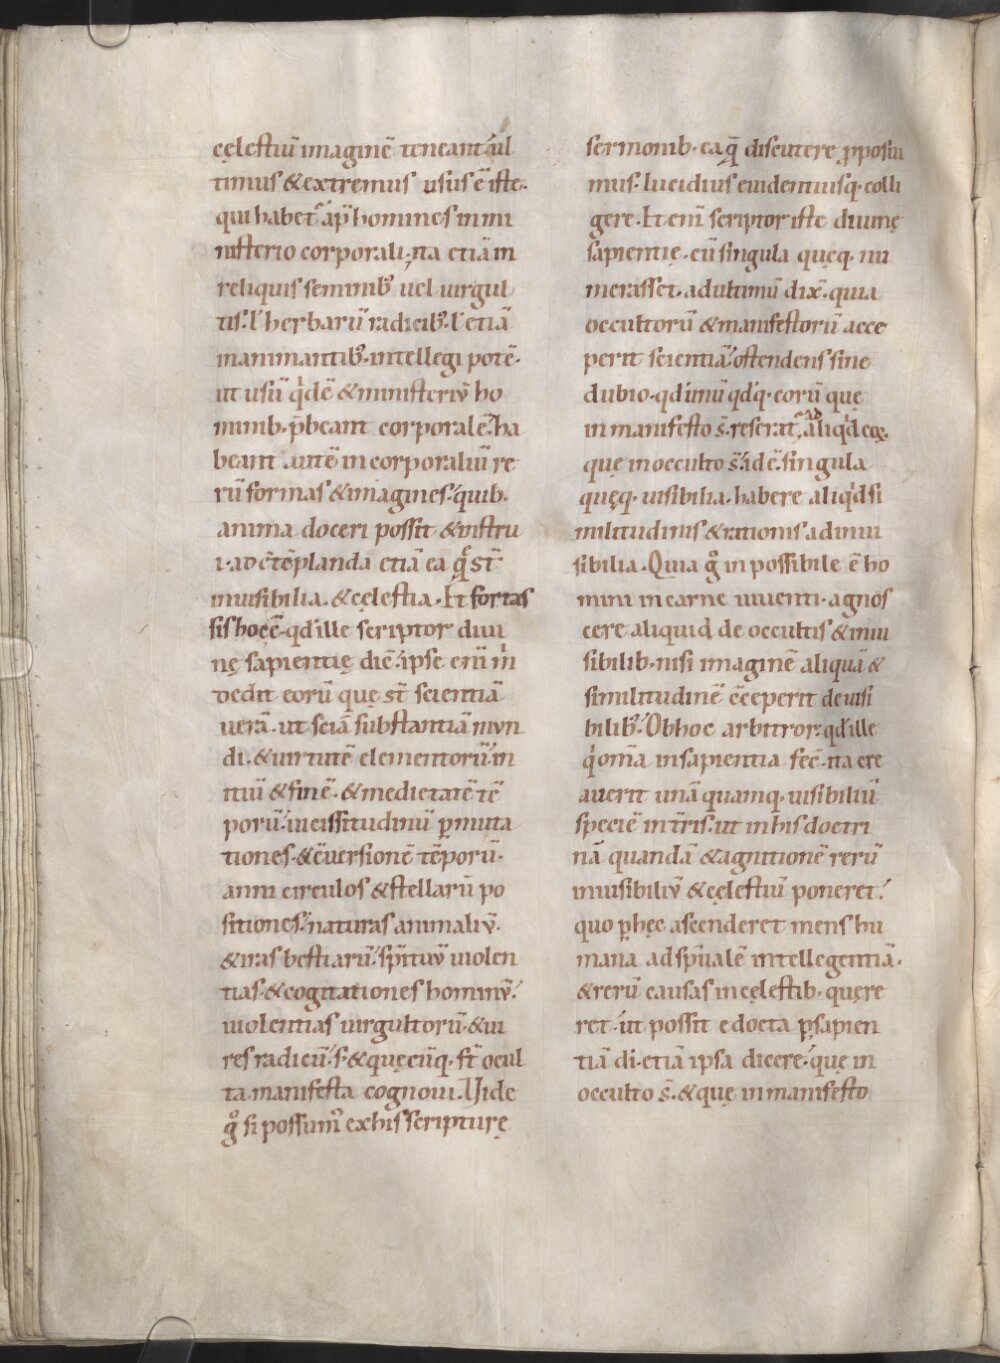 cęlestiū imaginē teneant· ul
timus &extremus usus ē iste·
qui habet̄ ap̄ homines in mi
nisterio corporali; ita etiā in
reliquis seminib; uel uirgul
tis·ł herbarū radicib;·ł etiā
inanimantib; intellegi potē·
ut usū q̇dē &ministeriū ho
minib· p̄beant corporalē· ha
beant autē incorporaliū re
rū formas &imagines· quib·
anima doceri possit &instru
i·ad c̄tēplanda etiā ea q̄ st̄
inuisibilia· &cęlestia· Et fortas
sis hoc ē· qd̄ ille scriptor diui
nę sapientię dic̄· ipse enī m̊
dedit eorū quę st̄ scientiā
uerā· ut sciā substantiā mun
di· &uirtutē elementorū· in
itiū &finē· &medietatē tē
porū· uicissitudinū p̱muta
tiones· &c̄uersionē tēporū·
anni circulos &stellarū po
sitiones· naturas animaliū·
&iras bestiarū· sp̄ituū uiolen
tias· &cogitationes hominū·
uiolentias uirgultorū· &ui
res radicū· s· &quęcūq· st̄ ocul
ta manifesta cognoui· Vide
g̊ si possum; ex his scripturę
sermonib· ea q̄ discutere p̱posui
mus· lucidius euidentiusq· colli
gere· Et enī scriptor iste diuinę
sapientię· cū singula quęq· nu
merasset· ad ultimū dix̄· quia
occultorū &manifestorū acce
perit scientiā· ostendens sine
dubio· qd̄ unū qd̄q· eorū quę
in manifesto s̄· referat̄ ad aliq̇d eoꝝ·
quę in occulto s̄· id ē· singula
quęq· uisibilia· habere aliq̇d si
militudinis &rationis ad inui
sibilia· Quia g̊ inpossibile ē ho
mini in carne uiuenti· agnos
cere aliquid de occultis &inui
sibilib· nisi imaginē aliquā &
similitudinē c̄ceperit de uisi
bilib;· Ob hoc arbitror· qd̄ ille
q̇ om̄a in sapientia fec̄· ita cre
auerit unā quamq· uisibiliū
speciē in t̄ris· ut in his doctri
nā quandā &agnitionē rerū
inuisibiliū &cęlestiū poneret·
quo p̱ hęc ascenderet mens hu
mana ad sp̄ualē intellegentiā·
&rerū causas in cęlestib· quęre
ret· ut possit edocta p̱ sapien
tiā di· etiā ipsa dicere· quę in
occulto s̄· &quę in manifesto